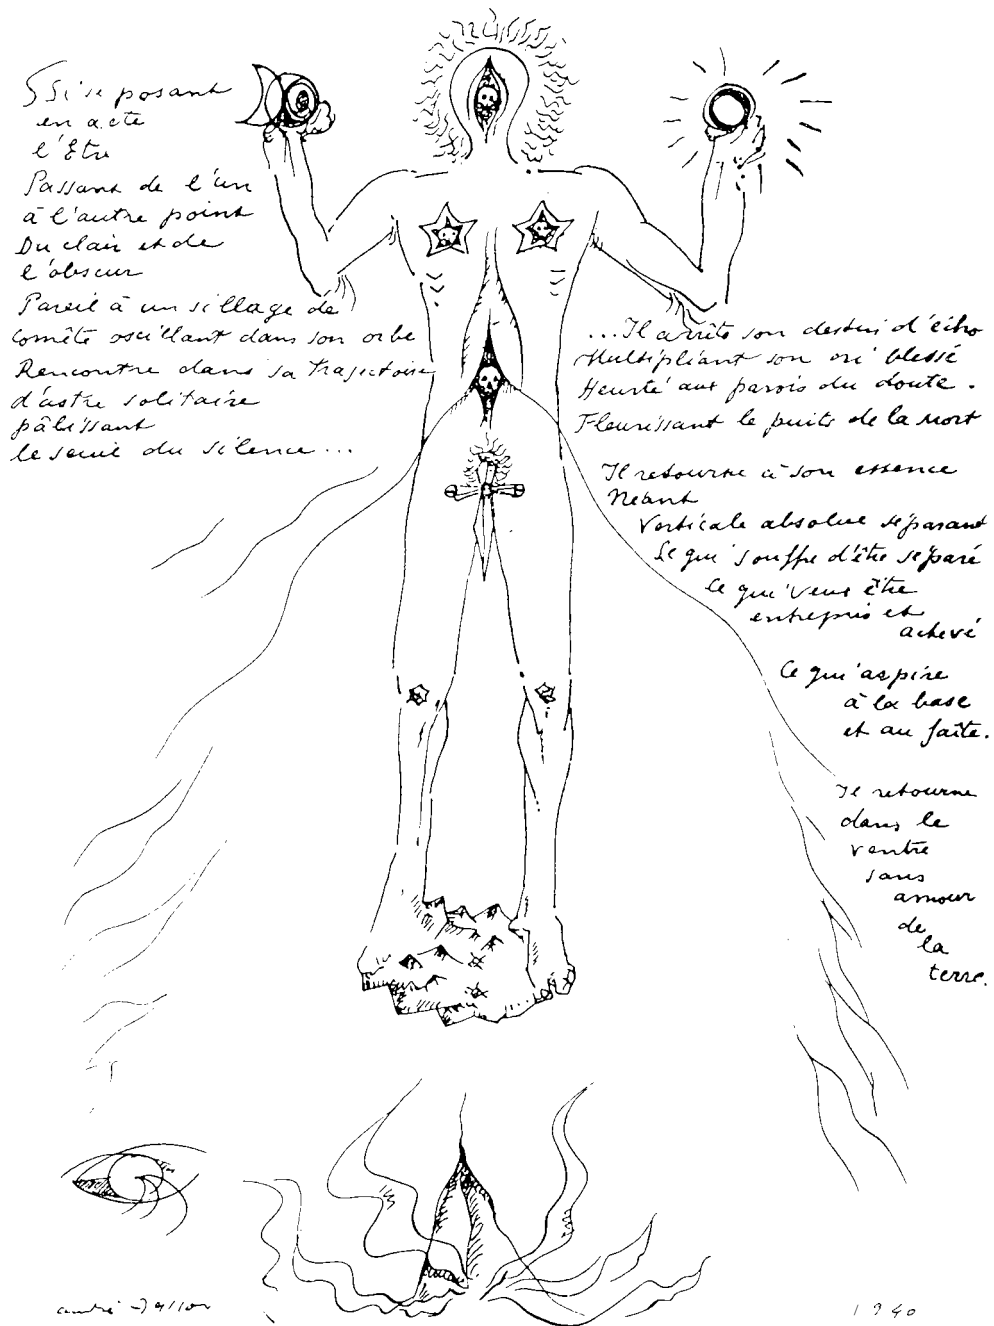 Si se posant
en acte
l'Etre
Passant de l'un
à l'autre point
Du clair et de
l'obscur
Pareil à un sillage de
Comète oscillant dans son orbe
Rencontre dans sa trajectoire
d'astre solitaire
pâlissant
le seuil du silence...
...Il arrête son destin d'écho
Multipliant son cri blessé
Heurté aux parois du doute.
Fleurissant le puits de la Mort
Il retourne à son essence
Néant
Verticale absolue séparant
Ce qui souffre d'être séparé
Ce qui veut être
entrepris et
achevé
Ce qui aspire
à la base
et au faîte.
Il retourne
dans le
ventre
sans
amour
de
la
terre.
andré Masson
1940